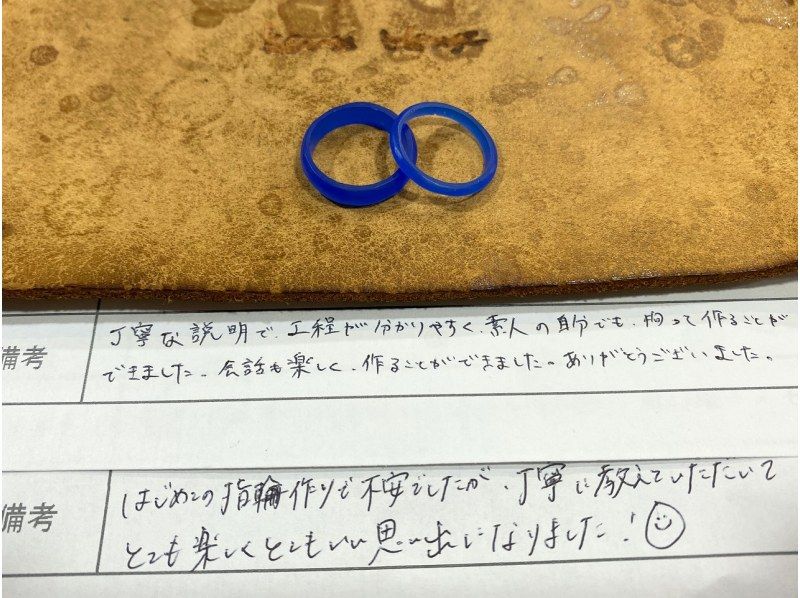 備考
丁寧な説明で、工程が分かりやすく、素人の自分でも、拘って作ることが
できました。会話も楽しく、作ることができました。ありがとうございました。
備考
はじめての指輪作りで不安でしたが、丁寧に教えていただいて
とても楽しくとてもいい思い出になりました!